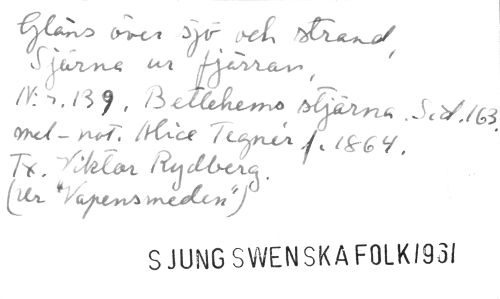 Gläns över sjö och strand,
Stjärna ur fjärran,
N:r. 139, Betlehems stjärna. S.d. 163.
mel-not. Alice Tegnér f. 1864.
Tx. Viktor Rydberg.
(ur "Vapensmeden")
SJUNG SWENSKA FOLK 1961